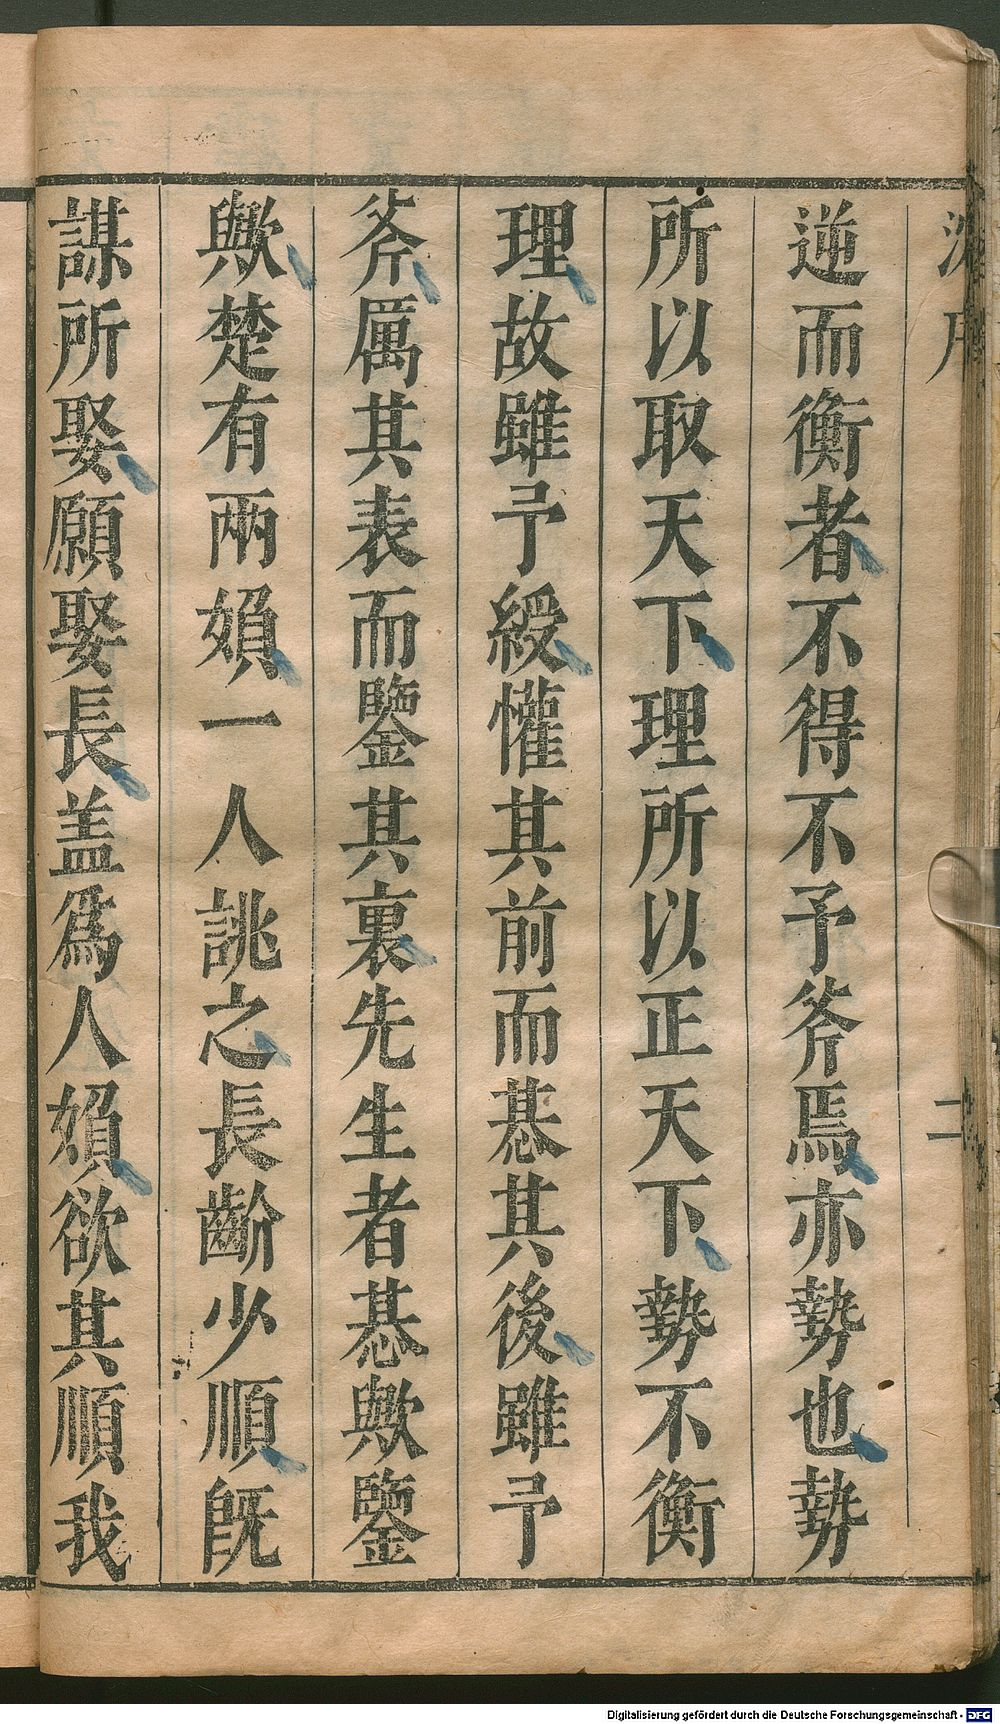 逆而衡者不得不予斧焉亦勢也勢
所以取天下理所以正天下勢不衡
理故雖予綬懼其前而惎其後雖予
斧厲其表而鑒其裏先生者惎歟鑒
歟楚有兩媍一人誂之長齡少順旣
謀所娶願娶長盖爲人媍欲其順我
序
二
Digitalisierung gefördert durch die Deutsche Forschungsgemeinschaft - DFG